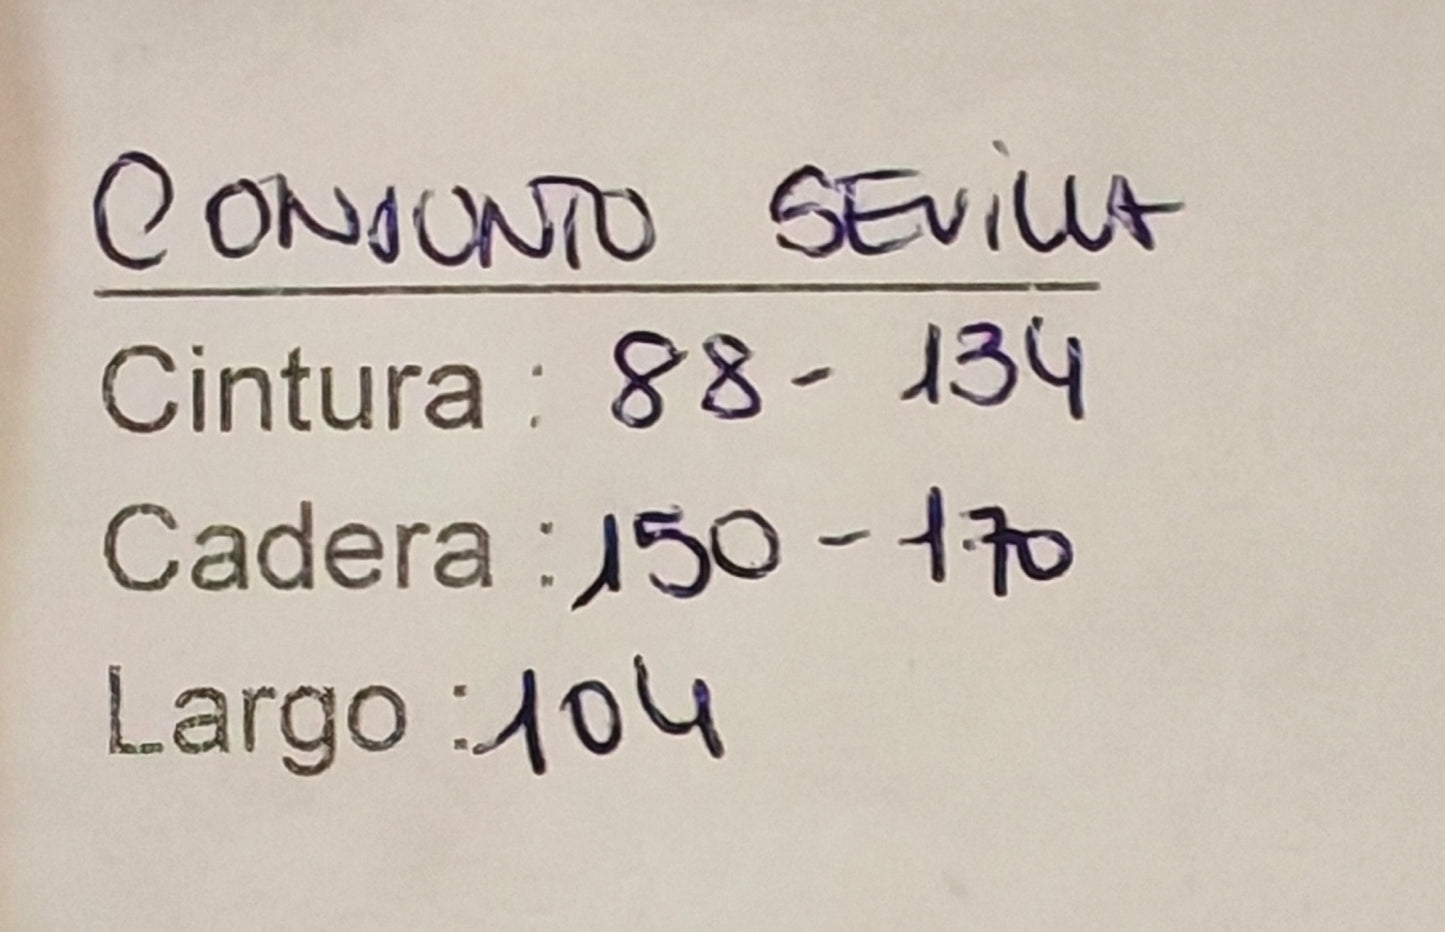 CONJUNTO SEViLLA
Cintura : 88 - 134
Cadera : 150 - 170
Largo : 104